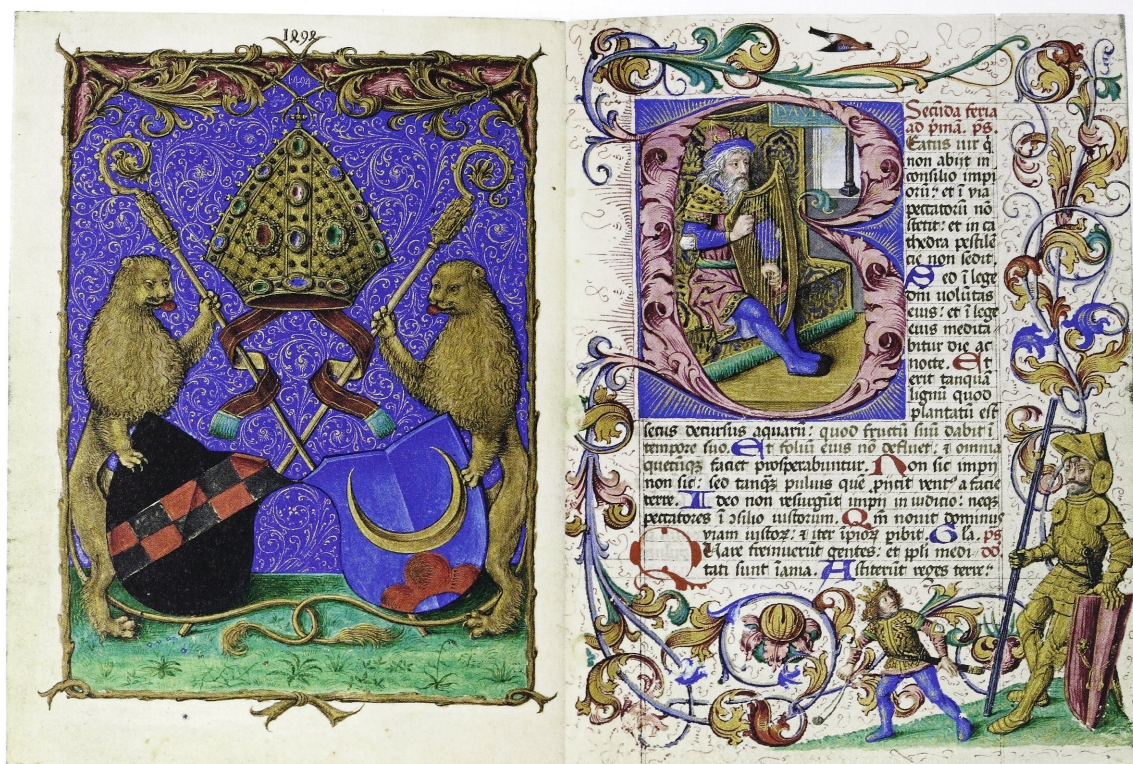 1494
1494
DAVID
Secūda feria
ad pīmā. ps.
Eatus uir q̄
non abijt in
consilio impi
orū: et ī via
peccatorū nō
stetit: et in ca
thedra pestilē
cie non sedit.
Sed ī lege
dnī uolūtas
eius: et ī lege
eius medita
bitur die ac
nocte. Et
erit tanquā
lignū quod
plantatū est
secus decursus aquarū: quod fructū suū dabit ī
tempore suo. Et foliū eius nō defluet: ⁊ omnia
quecūq; faciet prosperabuntur. Non sic impij
non sic: sed tanq̄ puluis quē p̄icit vent᾽ a facie
terre. Ideo non resurgūt impij in iudicio: neq;
peccatores ī ↄsilio iustorum. Qm̄ nouit dominus
viam iustoꝝ: ⁊ iter ipioꝝ pibit. Gla. ps
Quare fremuerūt gentes: et ppli medi- dd
tati sunt īania. Astiterūt reges terre: